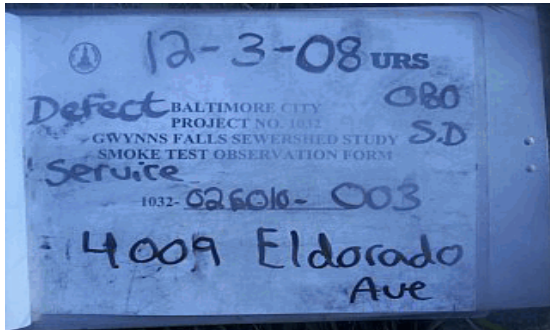 12-3-08 URS
Defect BALTIMORE CITY OBO
PROJECT NO. 1032
GWYNNS FALLS SEWERSHED STUDY S.D
SMOKE TEST OBSERVATION FORM
Service
1032- 026010- 003
4009 Eldorado
Ave